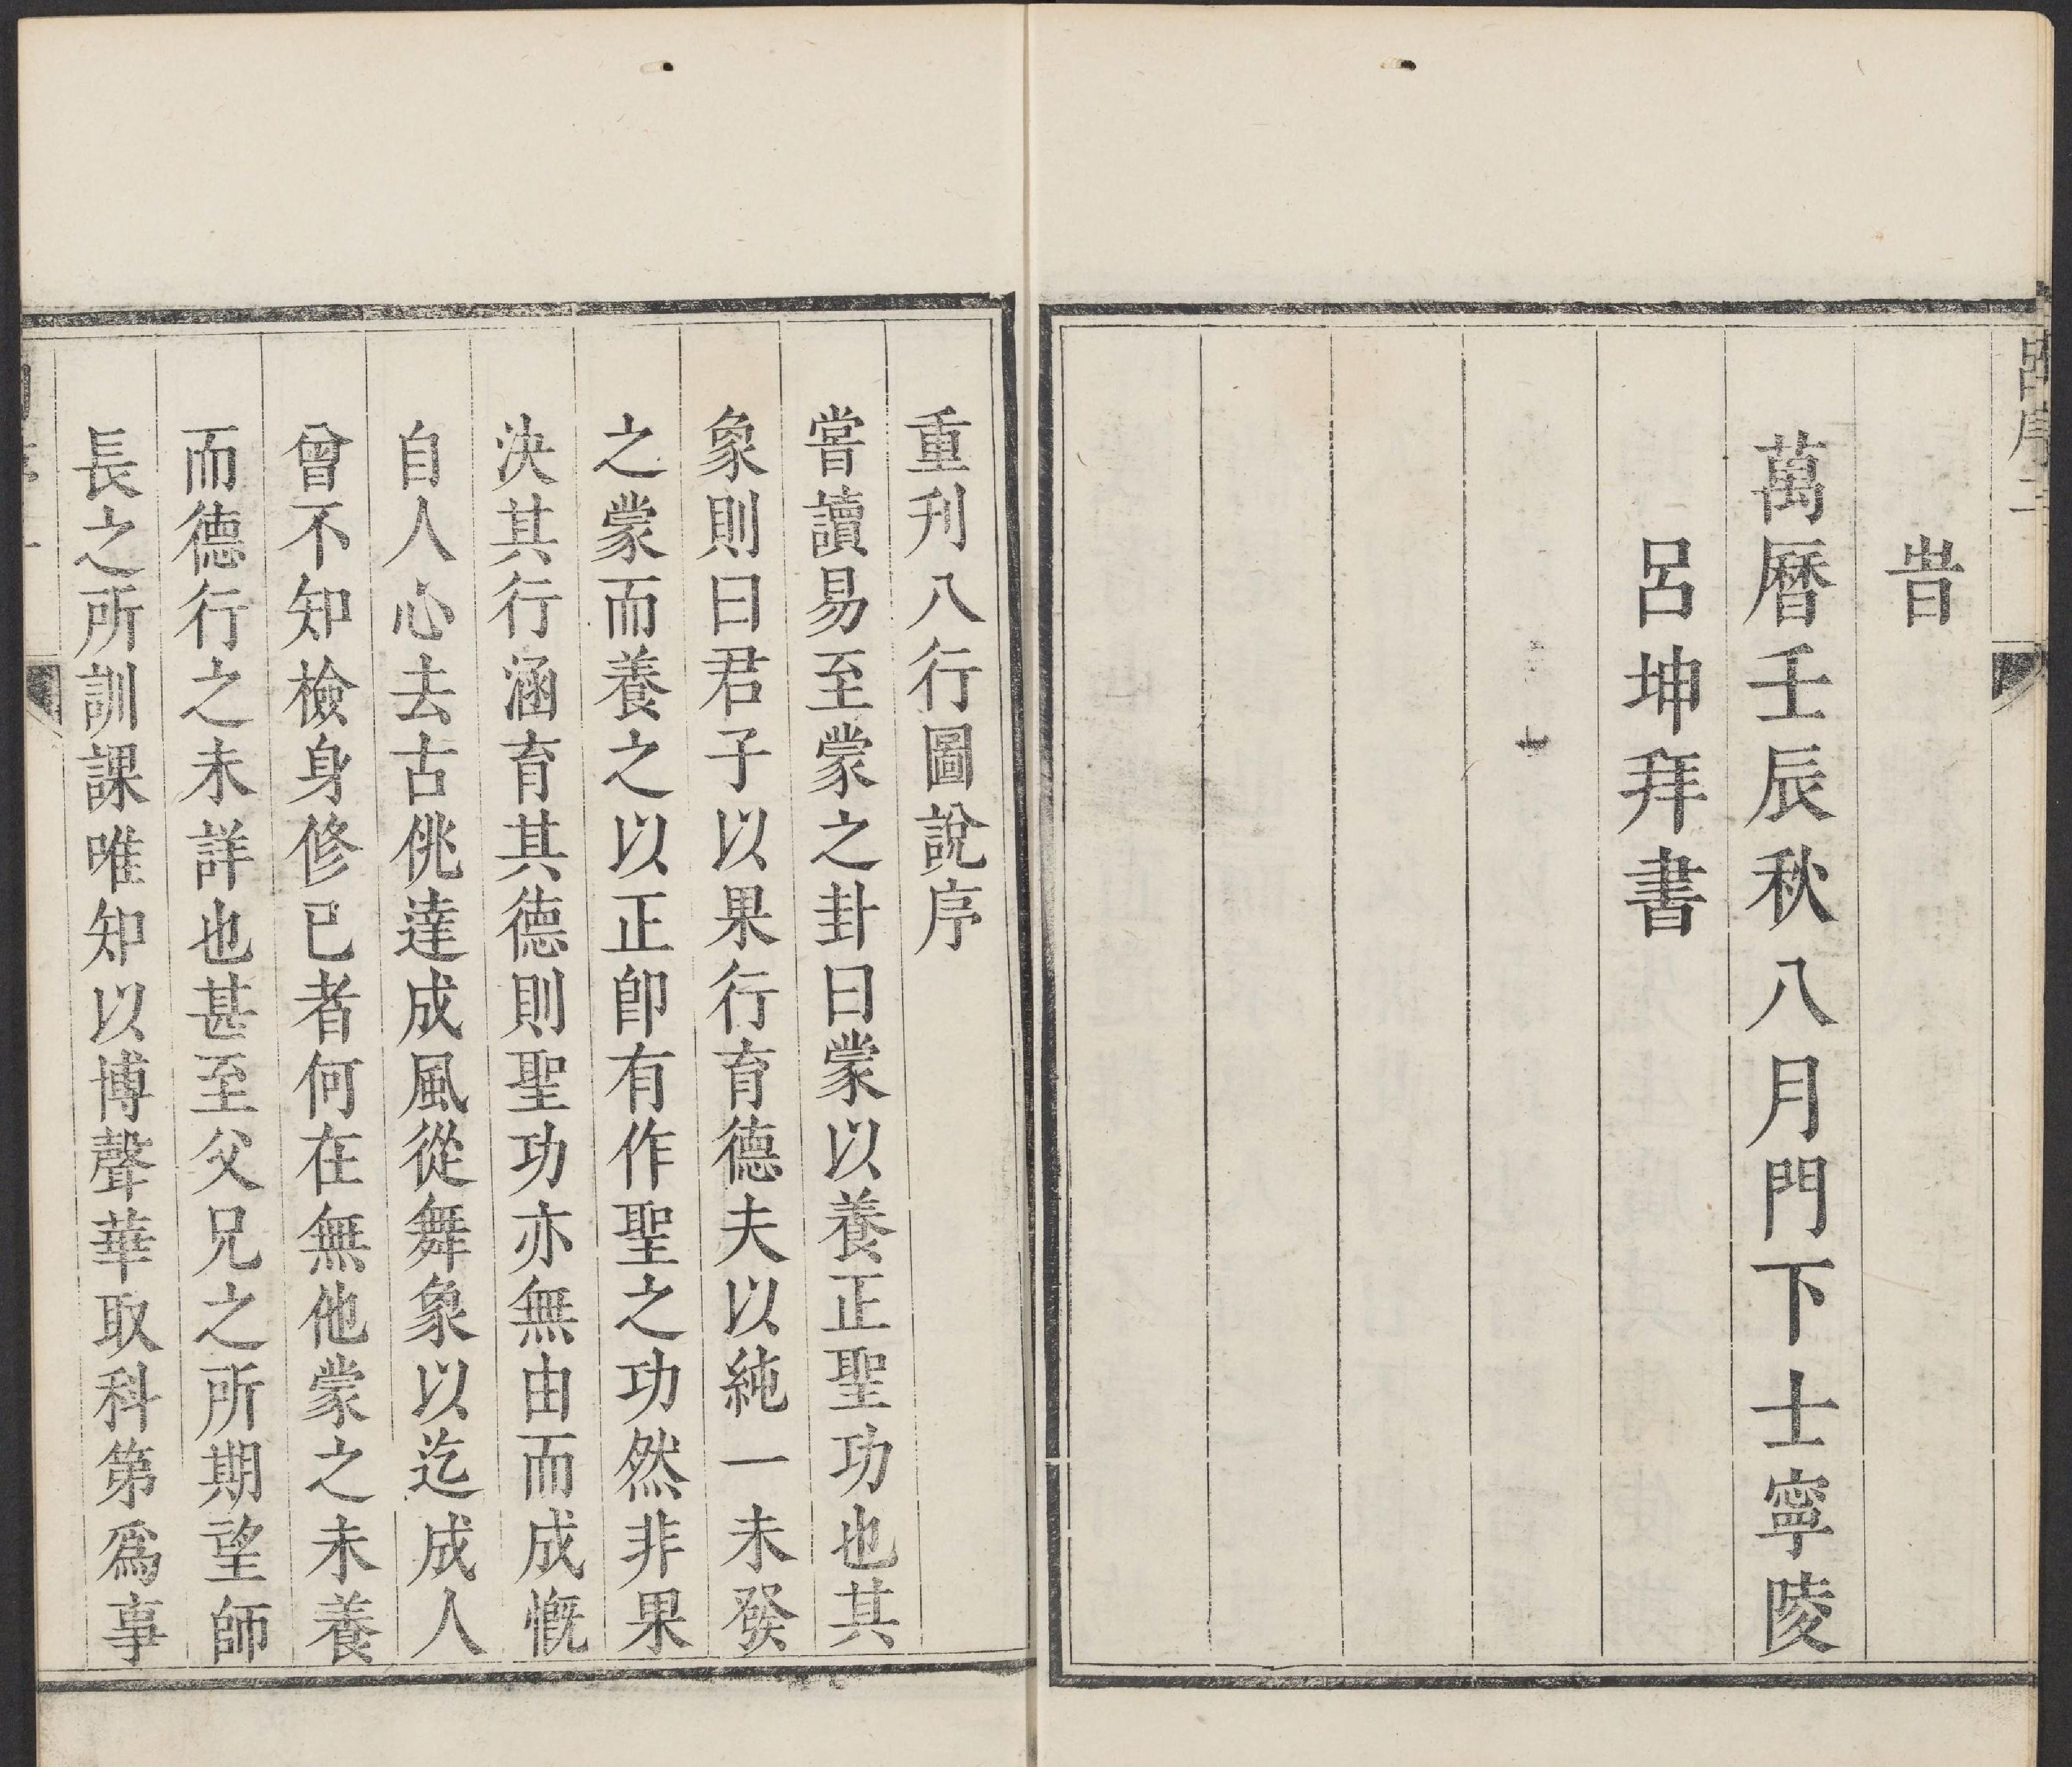 呂序二
旹
萬曆壬辰秋八月門下士寧陵
呂坤拜書
重刋八行圖說序
嘗讀易至蒙之卦曰蒙以養正聖功也其
象則曰君子以果行育德夫以純一未發
之蒙而養之以正卽有作聖之功然非果
決其行涵育其德則聖功亦無由而成慨
自人心去古佻達成風從舞象以迄成人
曾不知檢身修已者何在無他蒙之未養
而德行之未詳也甚至父兄之所期望師
長之所訓課唯知以博聲華取科第爲事